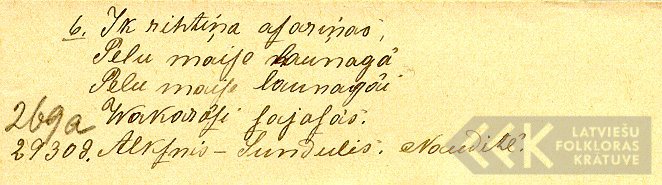 6. Ik rihtiņa asariņas,
Pelu maise launagâ
Pelu maise launagâi
Wakarâji jajasâs.
269a
29308. Alksnis-Sundulis. Naudite.
LATVIEŠU
FOLKLORAS
KRATUVE